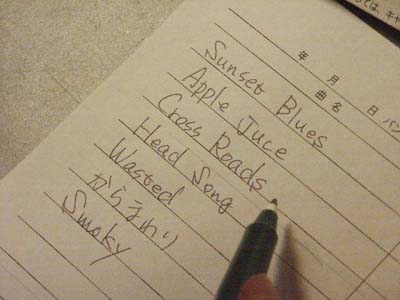 年 月 日
曲名
Sunset Blues
Apple Juce
Cross Roads
Head Song
Wasted
からまわり
Smoky